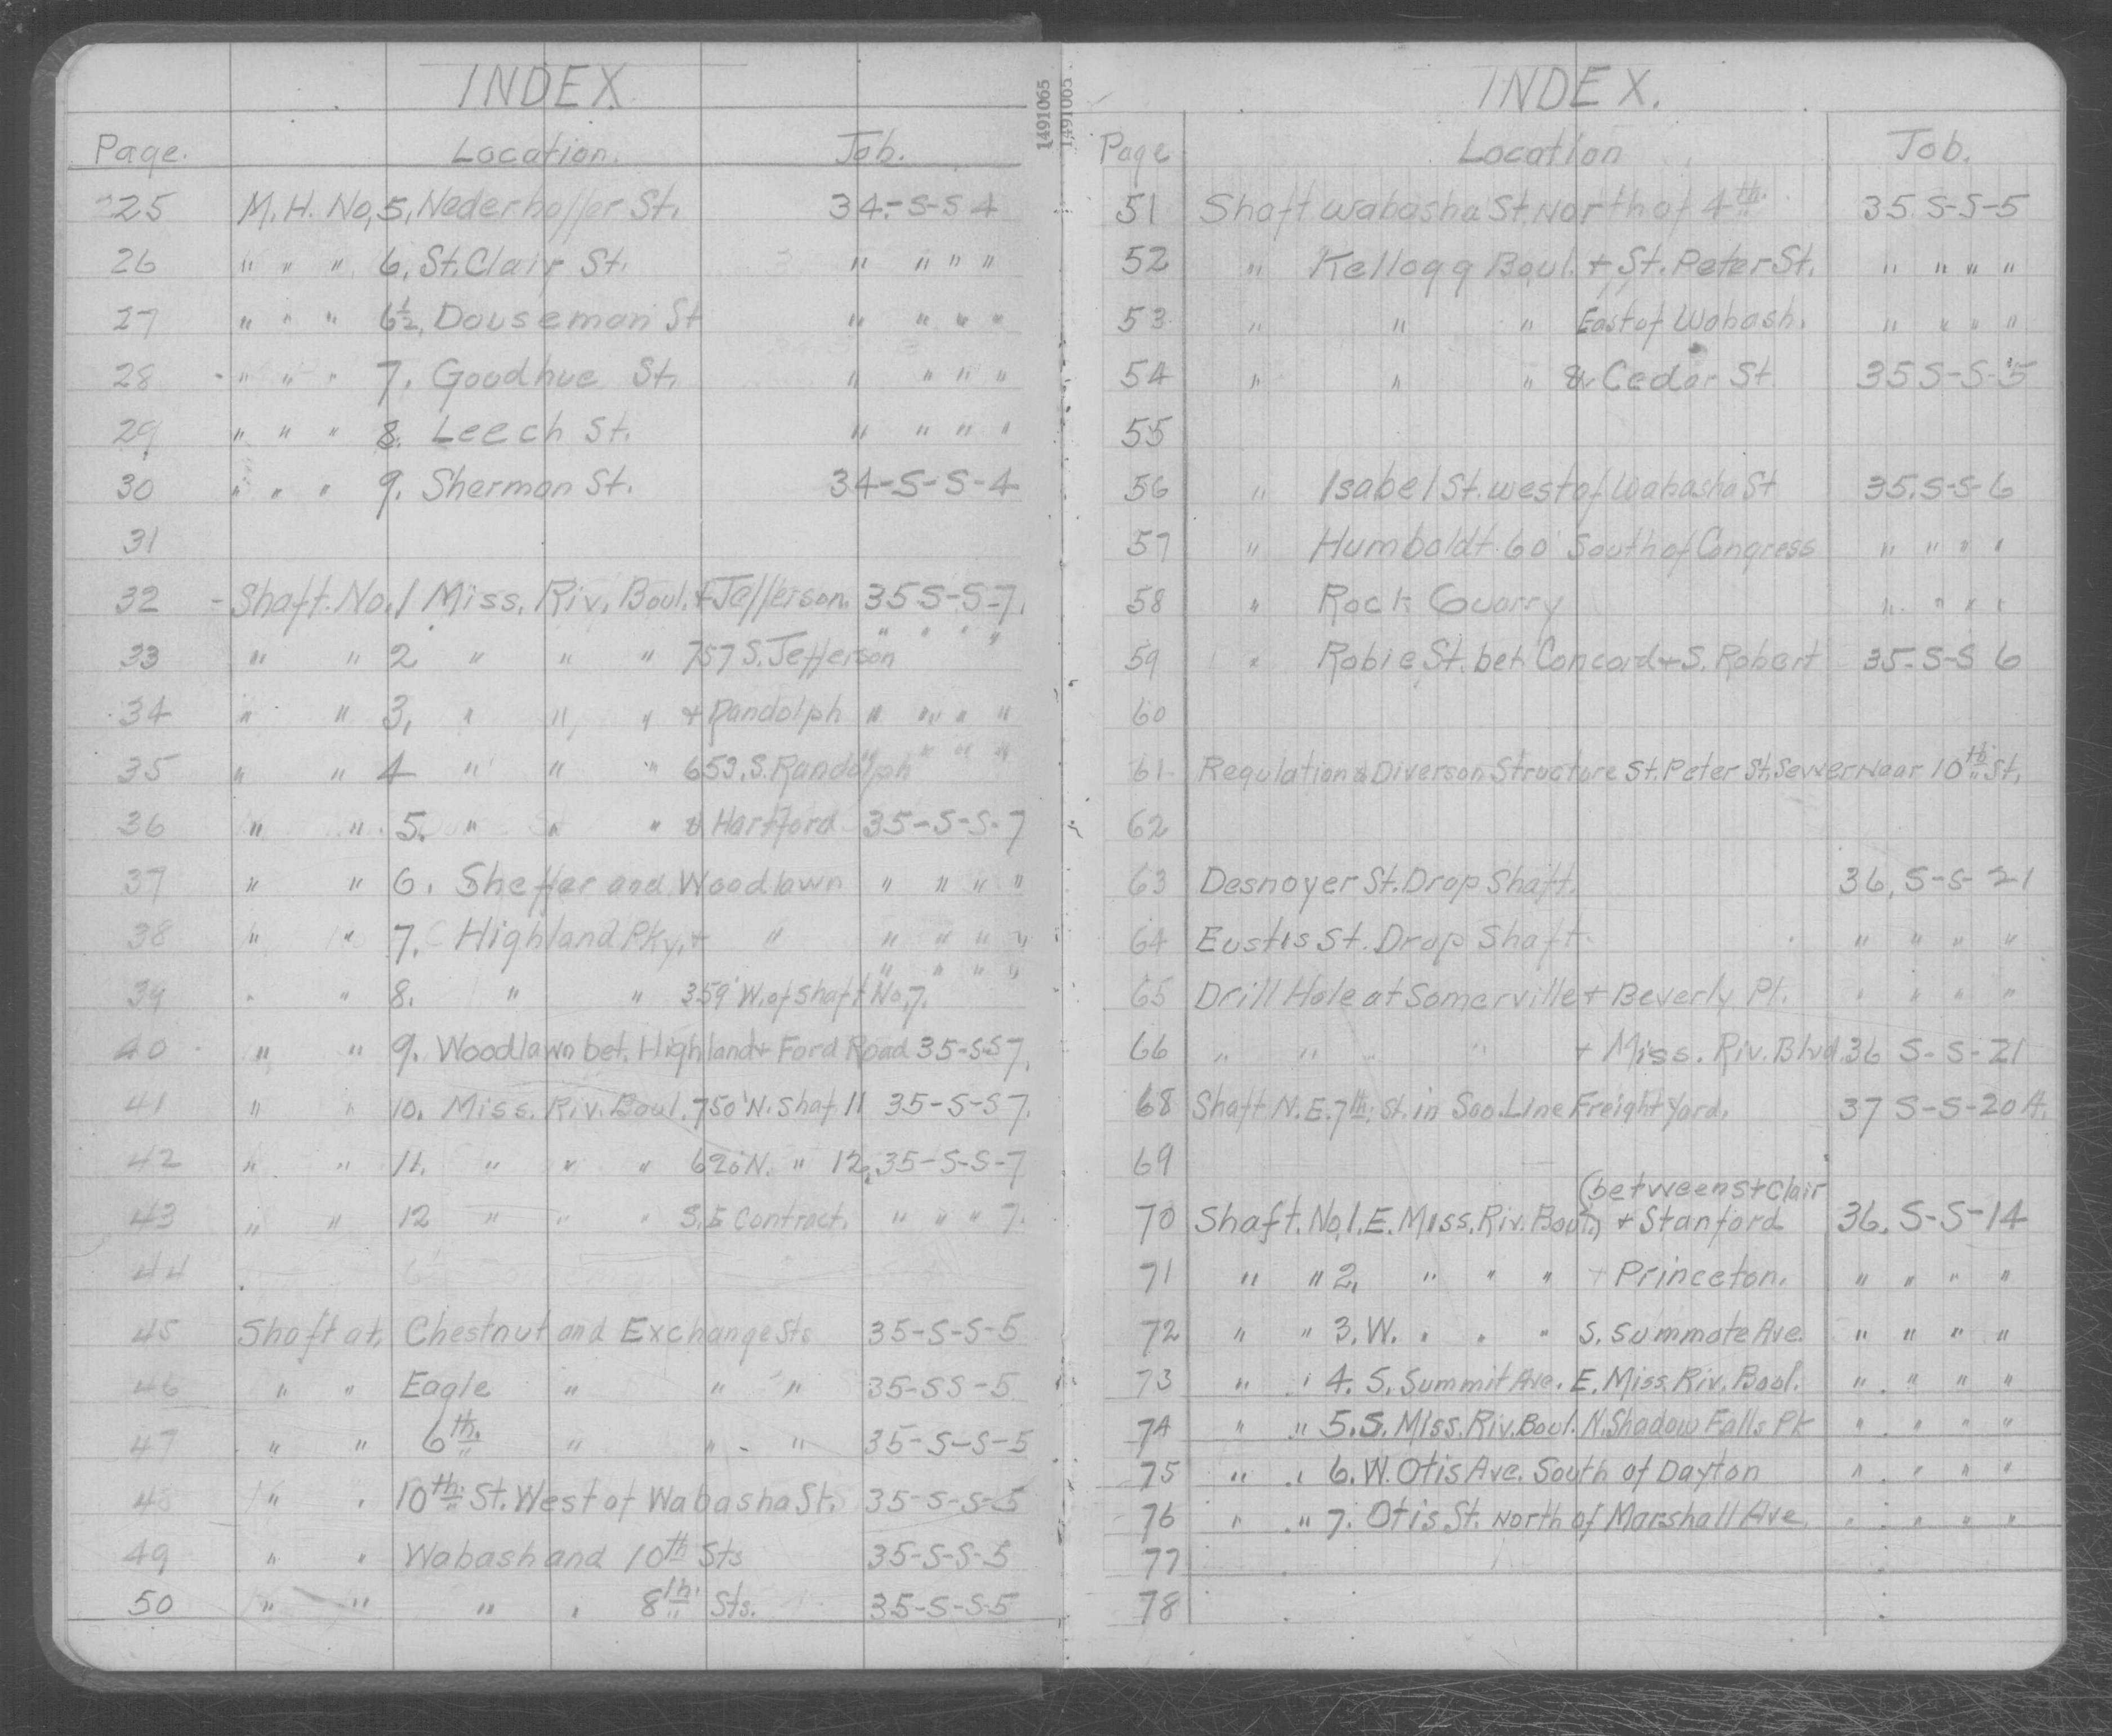 INDEX
Page. Location. Job.
25 M. H. No, 5, Nederhoffer St. 34-S-S 4
26 " " " 6, St. Clair St. " " " "
27 " " " 6½, Douseman St " " " "
28 " " " 7. Goodhue St. " " " "
29 " " " 8. Leech St. " " " "
30 " " " 9. Sherman St. 34-S-S-4
31
32 - Shaft. No. 1 Miss. Riv. Boul. + Jefferson. 35 S-S-7.
33 " " 2 " " " 757 S. Jefferson " " " "
34 " " 3, " " " + Randolph " " " "
35 " " 4 " " " 653. S. Randolph " " " "
36 " " 5. " " " & Hartford 35-S-S-7
37 " " 6. Sheffer and Woodlawn " " " "
38 " " 7. Highland Pky. + " " " " "
39 " " 8. " " 359' W. of Shaft No. 7. " " " "
40 " " 9. Woodlawn bet. Highland + Ford Road 35-S-S 7.
41 " " 10. Miss. Riv. Boul. 750' N. Shaf. 11 35-S-S 7.
42 " " 11. " " " 620' N. " 12. 35-S-S-7
43 " " 12 " " " S. E Contract. " " " 7.
44
45 Shaft at, Chestnut and Exchange Sts 35-S-S-5
46 " " Eagle " " " 35-S S-5
47 " " 6th. " " " 35-S-S-5
48 " " 10th. St. West of Wabasha St. 35-S-S-5
49 " " Wabash and 10th Sts 35-S-S-5
50 " " " " 8th. Sts. 35-S-S-5
1491065
1491065
INDEX.
Page Location Job.
51 Shaft Wabasha St. North of 4th. 35 S-S-5
52 " Kellogg Boul. + St. Peter St. " " " "
53 " " " East of Wabash. " " " "
54 " " " & Cedar St 35 S-S-5
55
56 " Isabel St. west of Wabasha St 35. S-S-6
57 " Humboldt. 60' South of Congress " " " "
58 " Rock Quarry " " " "
59 " Robie St. bet. Concord + S. Robert 35-S-S 6
60
61 Regulation & Diverson Structure St. Peter St. Sewer Near 10th St.
62
63 Desnoyer St. Drop Shaft. 36, S-S-21
64 Eustis St. Drop Shaft. " " " "
65 Drill Hole at Somerville + Beverly Pl. " " " "
66 " " " " + Miss. Riv. Blvd. 36 S-S-21
68 Shaft N. E. 7th. St. in Soo Line Freight Yard. 37 S-S-20 A.
69
(between St Clair
70 Shaft. No, 1. E. Miss. Riv. Boul.) + Stanford 36. S-S-14
71 " " 2, " " " + Princeton. " " " "
72 " " 3. W. " " " S. Summate Ave. " " " "
73 " " 4. S. Summit Ave. E. Miss. Riv. Boul. " " " "
74 " " 5. S. Miss. Riv. Boul. N. Shadow Falls Pk " " " "
75 " " 6. W. Otis Ave. South of Dayton " " " "
76 " " 7. Otis St. North of Marshall Ave. " " " "
77
78